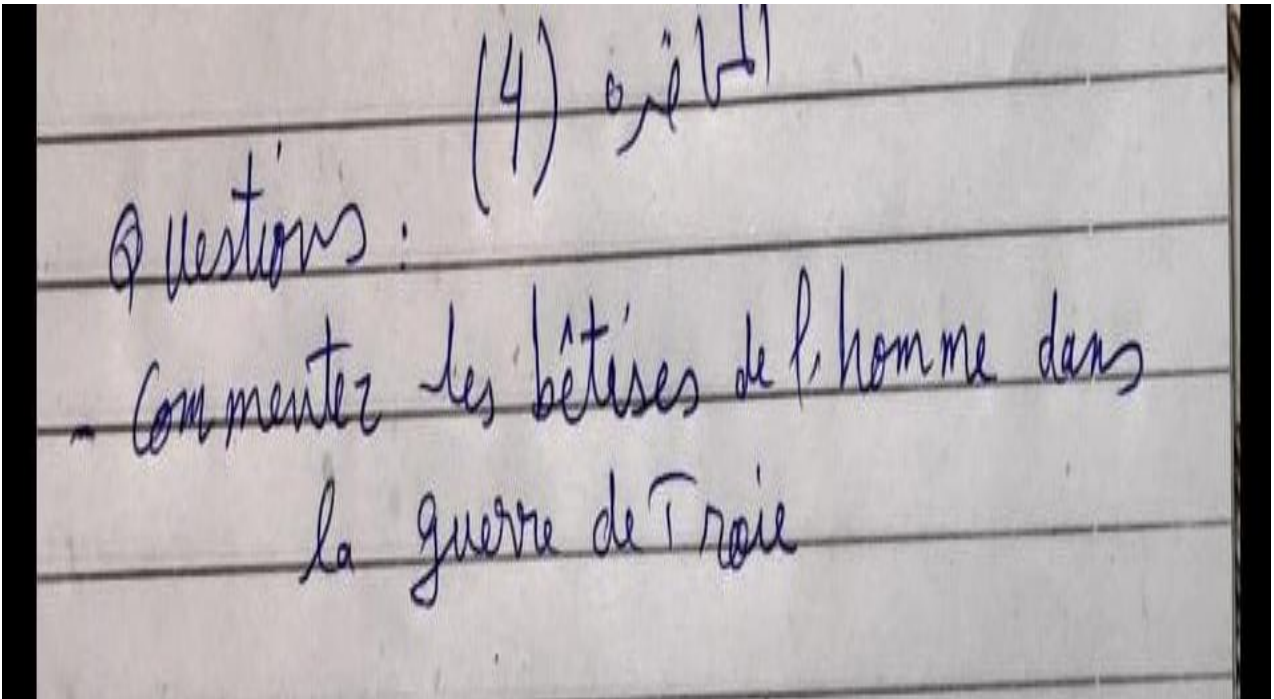 المحاضره (4)
Questions :
- Commentez les bêtises de l'homme dans
la guerre de Troie